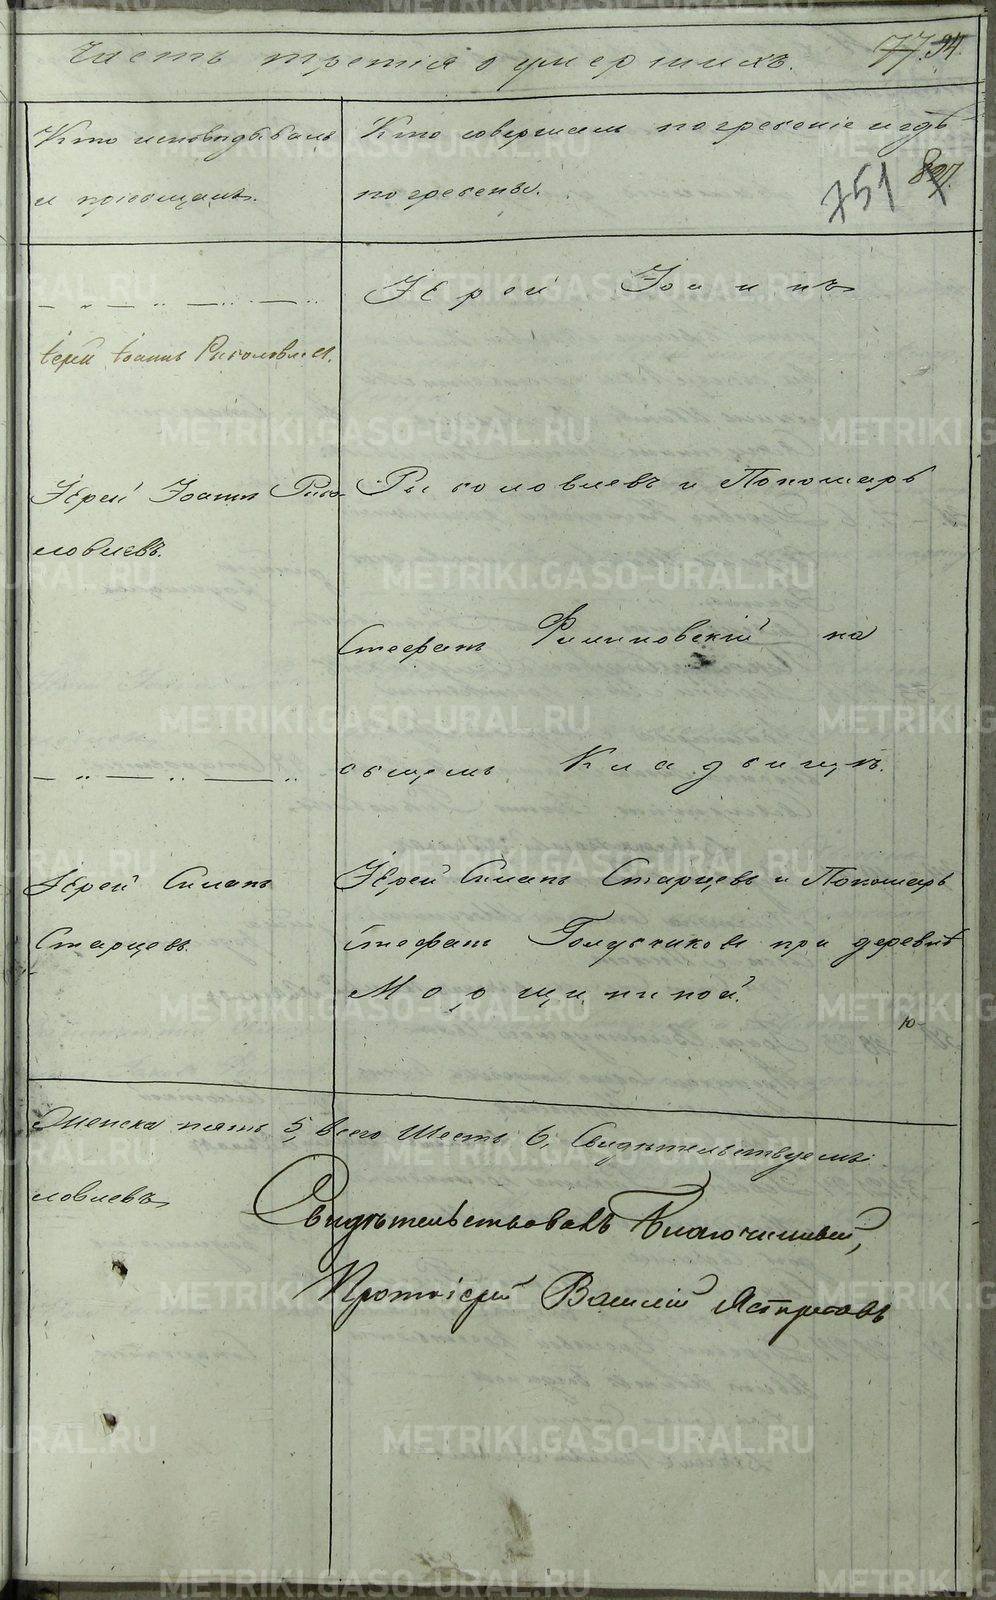 Часть третія о умершихъ. 77. 94.
Кто исповѣдывалъ
и пріобщалъ.
Кто совершалъ погребеніе и гдѣ
погребены.
751
Іерей Іоаннъ
Іерей Іоаннъ
Іерей Іоаннъ Рыко-
ловлевъ.
Рыколовлевъ и Пономарь
Стефанъ Филиповскій на
общемъ Кладбищѣ.
Іерей Симонъ
Старцевъ.
Іерей Симонъ Старцевъ и Пономарь
Стефанъ при деревнѣ
Морщининой.
Женска пять 5, всего Шесть 6, Свидѣтельствуемъ:
ловлевъ
Свидѣтельствовалъ Благочинный,
Протоіерей Василій
METRIKI.GASO-URAL.RU